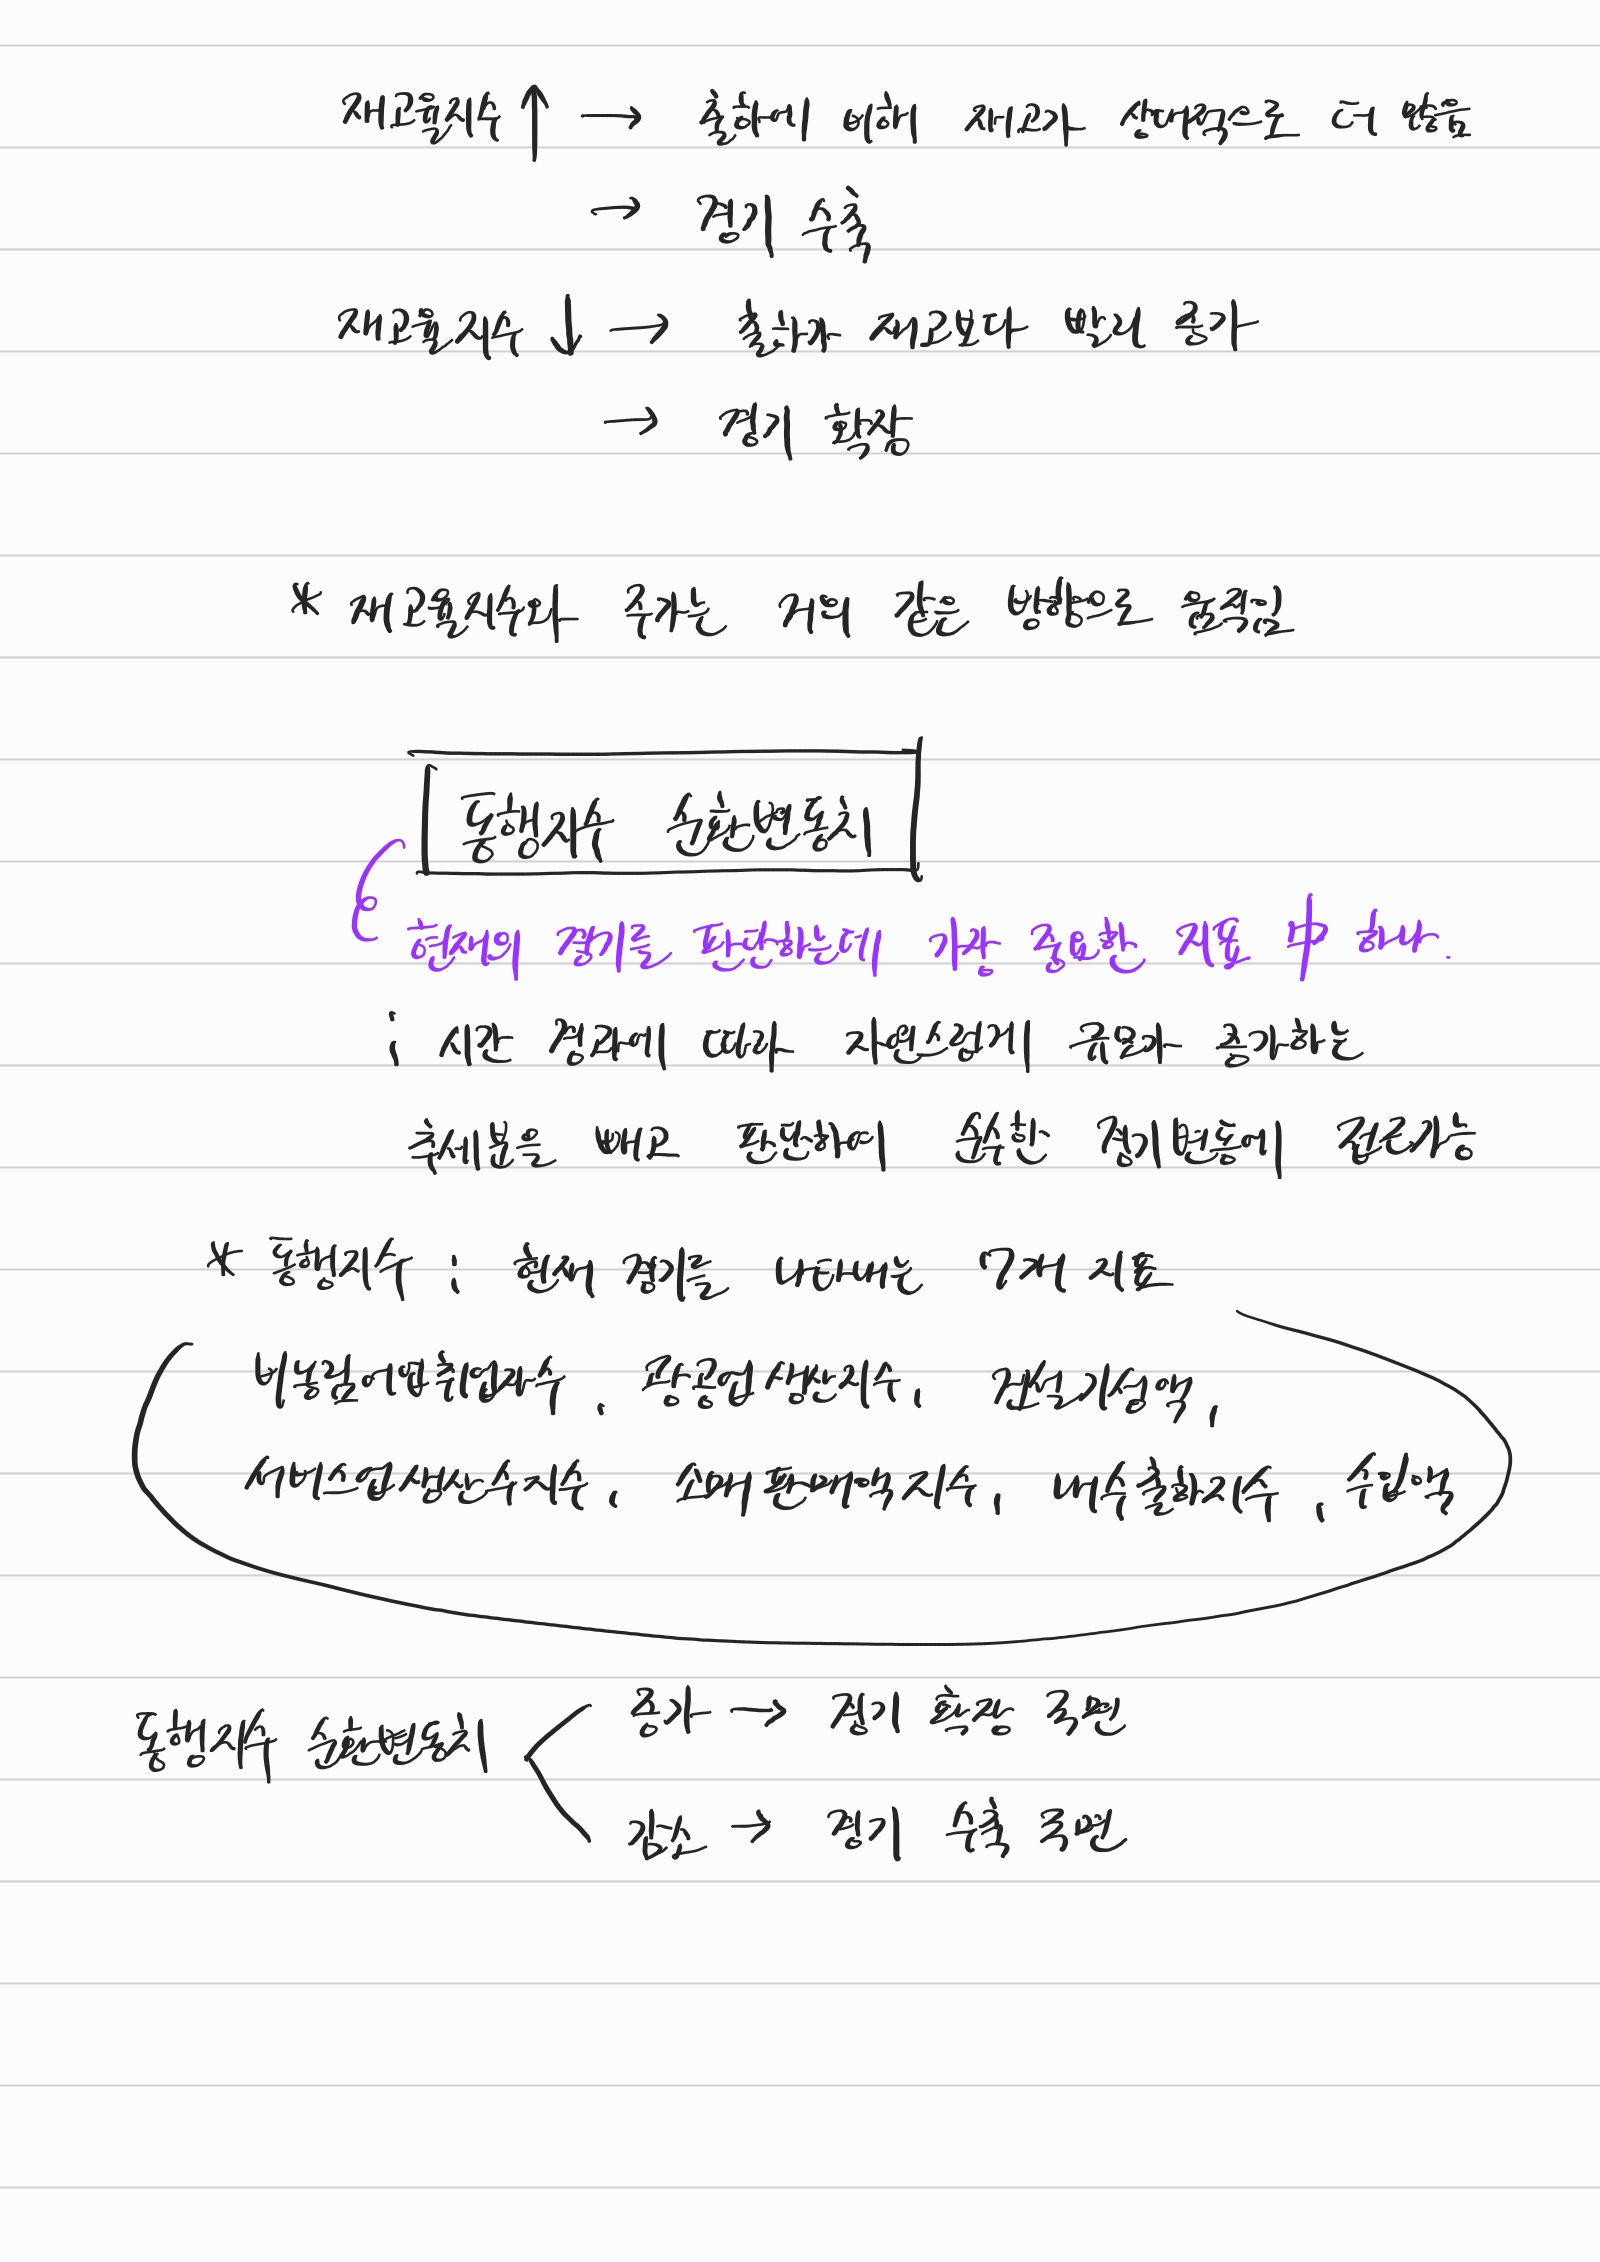 재고율지수 ↑ → 출하에 비해 재고가 상대적으로 더 많음
→ 경기 수축
재고율지수 ↓ → 출하가 재고보다 빨리 증가
→ 경기 확장
* 재고율지수와 주가는 거의 같은 방향으로 움직임
동행지수 순환변동치
현재의 경기를 판단하는데 가장 중요한 지표 中 하나.
: 시간 경과에 따라 자연스럽게 규모가 증가하는
추세분을 빼고 판단하여 순수한 경기변동에 접근가능
* 동행지수 : 현재 경기를 나타내는 7개 지표
비농림어업취업자수, 광공업생산지수, 건설기성액,
서비스업생산수지수, 소매판매액지수, 내수출하지수, 수입액
동행지수 순환변동치 < 증가 → 경기 확장 국면
감소 → 경기 수축 국면